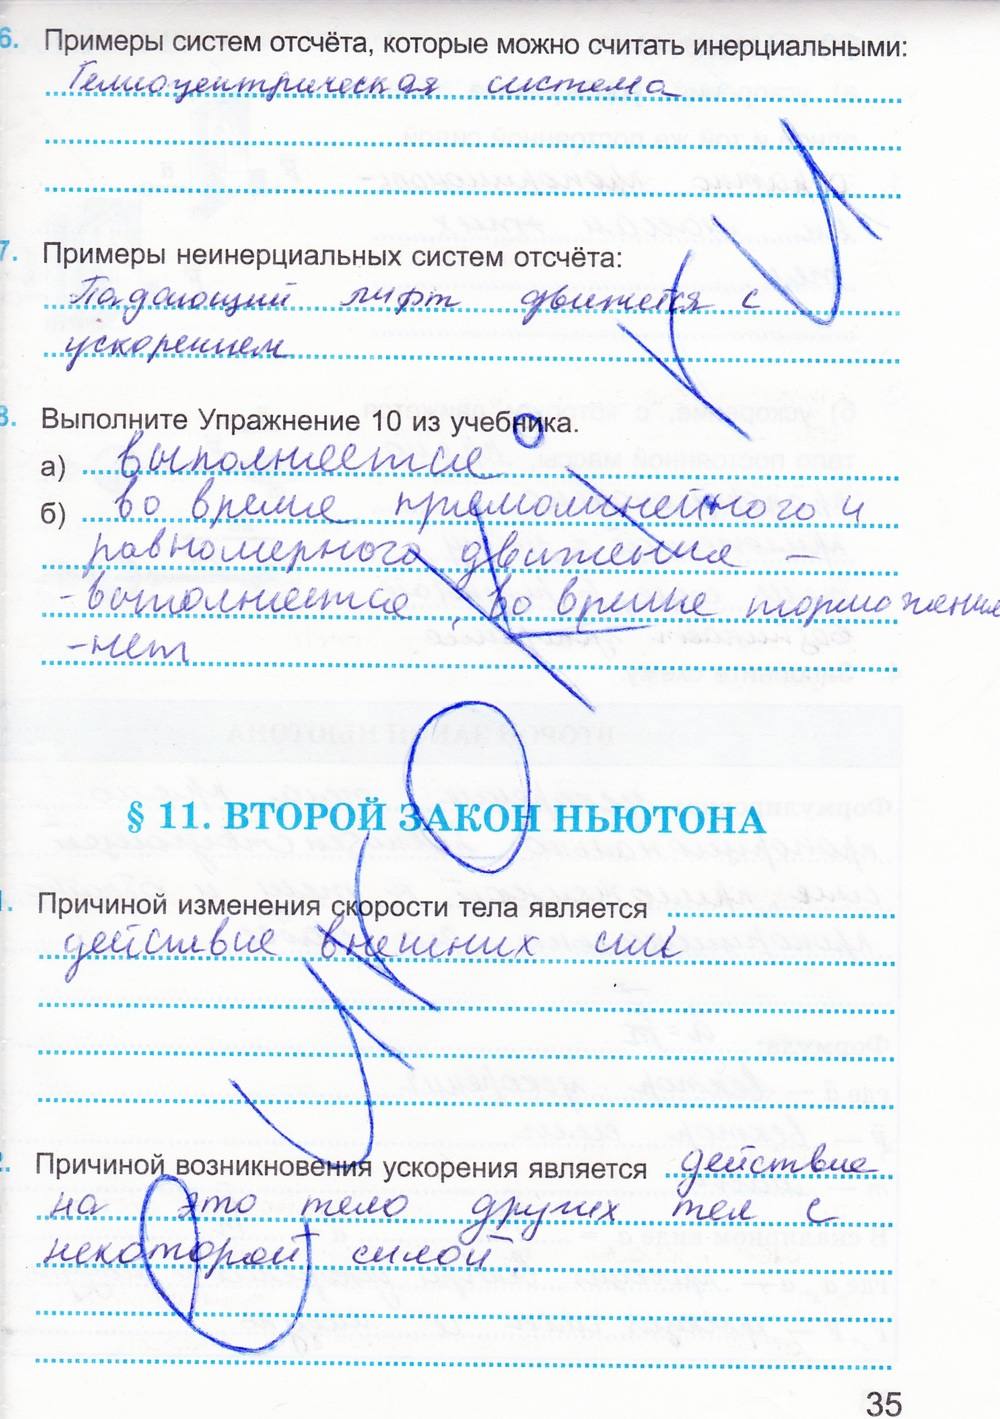 6. Примеры систем отсчёта, которые можно считать инерциальными:
Гелиоцентрическая система
7. Примеры неинерциальных систем отсчёта:
Падающий лифт движется с
ускорением
8. Выполните Упражнение 10 из учебника.
а) выполняется
б) во время прямолинейного и
равномерного движения –
- выполняется, во время торможения
- нет
§ 11. ВТОРОЙ ЗАКОН НЬЮТОНА
1. Причиной изменения скорости тела является
действие внешних сил
2. Причиной возникновения ускорения является действие
на это тело других тел с
некоторой силой.
35